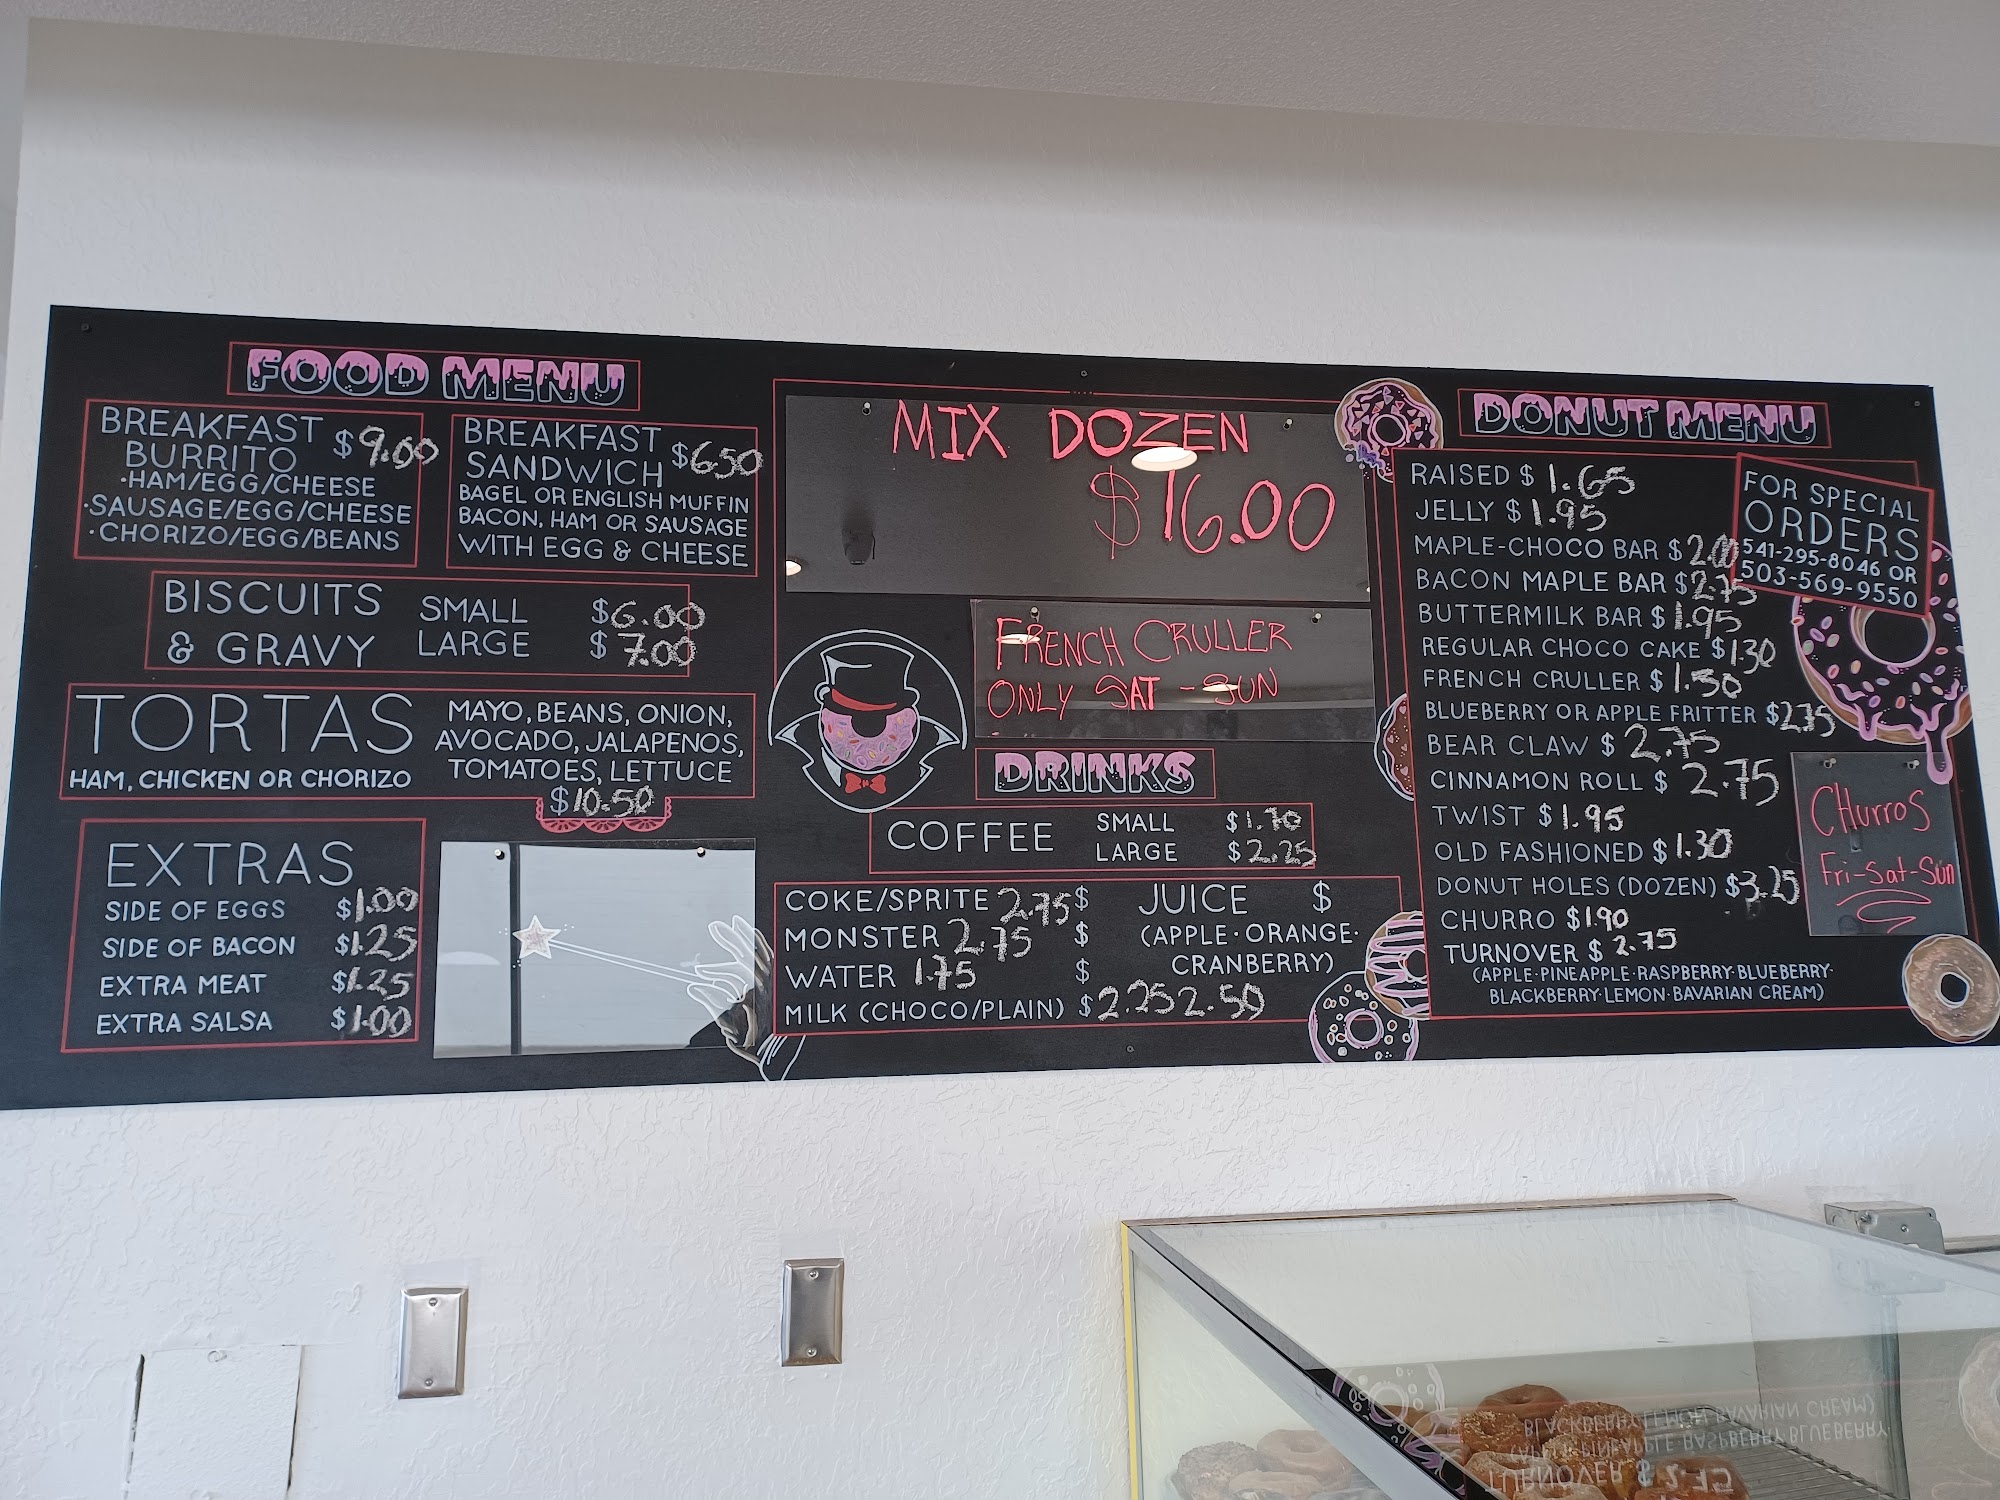 FOOD MENU
BREAKFAST
BURRITO $9.00
·HAM/EGG/CHEESE
·SAUSAGE/EGG/CHEESE
·CHORIZO/EGG/BEANS
BREAKFAST
SANDWICH $6.50
BAGEL OR ENGLISH MUFFIN
BACON, HAM OR SAUSAGE
WITH EGG & CHEESE
BISCUITS
& GRAVY
SMALL $6.00
LARGE $7.00
TORTAS
HAM, CHICKEN OR CHORIZO
MAYO, BEANS, ONION,
AVOCADO, JALAPENOS,
TOMATOES, LETTUCE
$10.50
EXTRAS
SIDE OF EGGS $1.00
SIDE OF BACON $1.25
EXTRA MEAT $1.25
EXTRA SALSA $1.00
MIX DOZEN
$16.00
FRENCH CRULLER
ONLY SAT - SUN
DRINKS
COFFEE
SMALL $1.70
LARGE $2.25
COKE/SPRITE 2.75 $
MONSTER 2.75 $
WATER 1.75 $
MILK (CHOCO/PLAIN) $2.25 2.50
JUICE $
(APPLE·ORANGE·
CRANBERRY)
DONUT MENU
RAISED $1.65
JELLY $1.95
MAPLE-CHOCO BAR $2.00
BACON MAPLE BAR $2.75
BUTTERMILK BAR $1.95
REGULAR CHOCO CAKE $1.30
FRENCH CRULLER $1.50
BLUEBERRY OR APPLE FRITTER $2.75
BEAR CLAW $2.75
CINNAMON ROLL $2.75
TWIST $1.95
OLD FASHIONED $1.30
DONUT HOLES (DOZEN) $3.25
CHURRO $1.90
TURNOVER $2.75
(APPLE·PINEAPPLE·RASPBERRY·BLUEBERRY·
BLACKBERRY·LEMON·BAVARIAN CREAM)
FOR SPECIAL
ORDERS
541-295-8046 OR
503-569-9550
CHurros
Fri-Sat-Sun